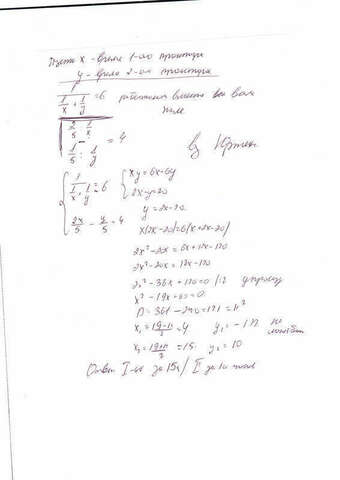 Пусть x - время 1-ого трактора
y - время 2-ого трактора
1/(1/x + 1/y) = 6 работают вместе
2/5 : 1/x - 1/5 : 1/y = 4
{ 1/(1/x + 1/y) = 6 { xy = 6x+6y
2x/5 - y/5 = 4 2x-y=20
y = 2x-20
x(2x-20)=6(x+2x-20)
2x²-20x = 6x+12x-120
2x²-20x = 18x-120
2x²-38x+120=0 /:2
x²-19x+60=0
D = 361-240=121=11²
x₁ = (19-11)/2 = 4 y₁ = -12 не
x₂ = (19+11)/2 = 15 y₂ = 10
Ответ I-ый за 15ч / II за 10 часов